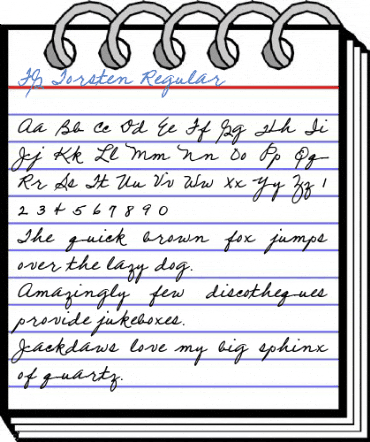 FG Torsten Regular
Aa Bb Cc Dd Ee Ff Gg Hh Ii
Jj Kk Ll Mm Nn Oo Pp Qq
Rr Ss Tt Uu Vv Ww Xx Yy Zz 1
2 3 4 5 6 7 8 9 0
The quick brown fox jumps
over the lazy dog.
Amazingly few discotheques
provide jukeboxes.
Jackdaws love my big sphinx
of quartz.